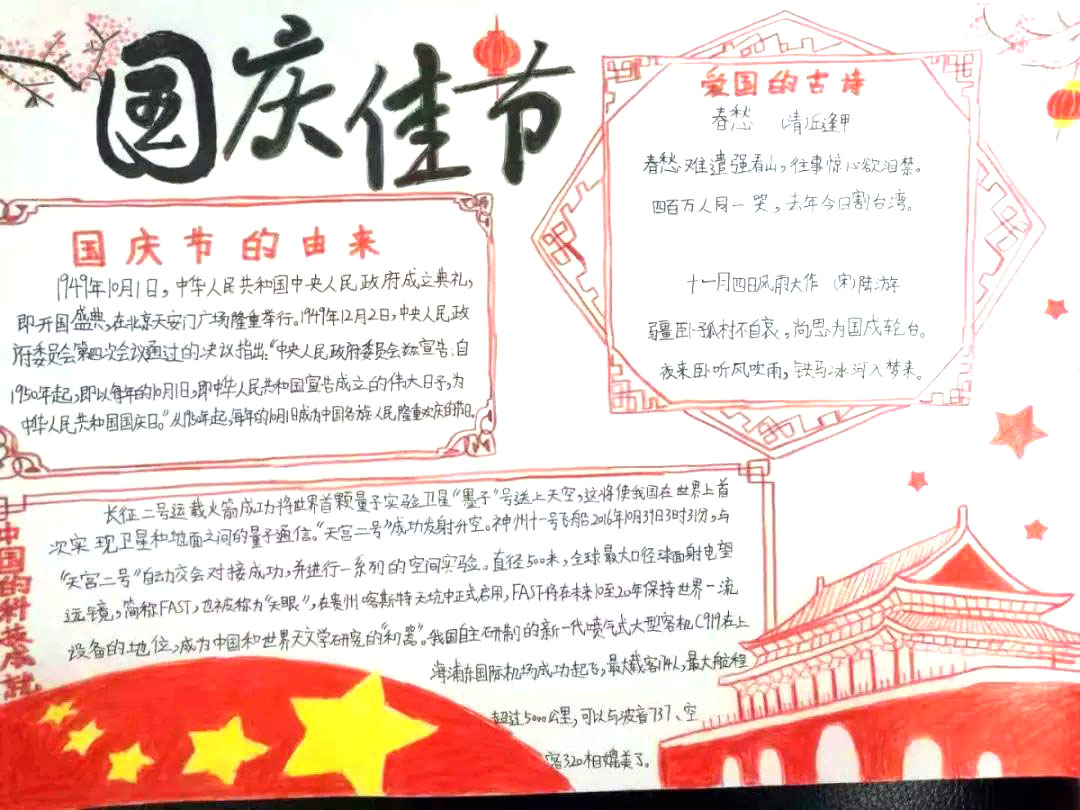 国庆佳节
国庆节的由来
1949年10月1日,中华人民共和国中央人民政府成立典礼,
即开国盛典,在北京天安门广场隆重举行。1949年12月2日,中央人民政
府委员会第四次会议通过的决议指出:“中央人民政府委员会兹宣告:自
1950年起,即以每年的10月1日,即中华人民共和国宣告成立的伟大日子,为
中华人民共和国国庆日。”从1950年起,每年的10月1日成为中国各族人民隆重欢庆的节日。
爱国的古诗
春愁 (清)丘逢甲
春愁难遣强看山,往事惊心欲泪禁。
四百万人同一哭,去年今日割台湾。
十一月四日风雨大作 (宋)陆游
僵卧孤村不自哀,尚思为国戍轮台。
夜来卧听风吹雨,铁马冰河入梦来。
中国的科技成就
长征二号运载火箭成功将世界首颗量子实验卫星“墨子”号送上天空,这将使我国在世界上首
次实现卫星和地面之间的量子通信。“天宫二号”成功发射升空。神州十一号飞船2016年10月39日3时31份,与
“天宫二号”自动交会对接成功,并进行一系列的空间实验。直径500米,全球最大口径球面射电望
远镜,简称FAST,也被称为“天眼”,在贵州喀斯特天坑中正式启用,FAST将在未来10至20年保持世界一流
设备的地位,成为中国和世界天文学研究的“利器”。我国自主研制的新一代喷气式大型客机C919在上
海浦东国际机场成功起飞,最大载客174人,最大航程
超过5000公里,可以与波音737、空
客320相媲美了。